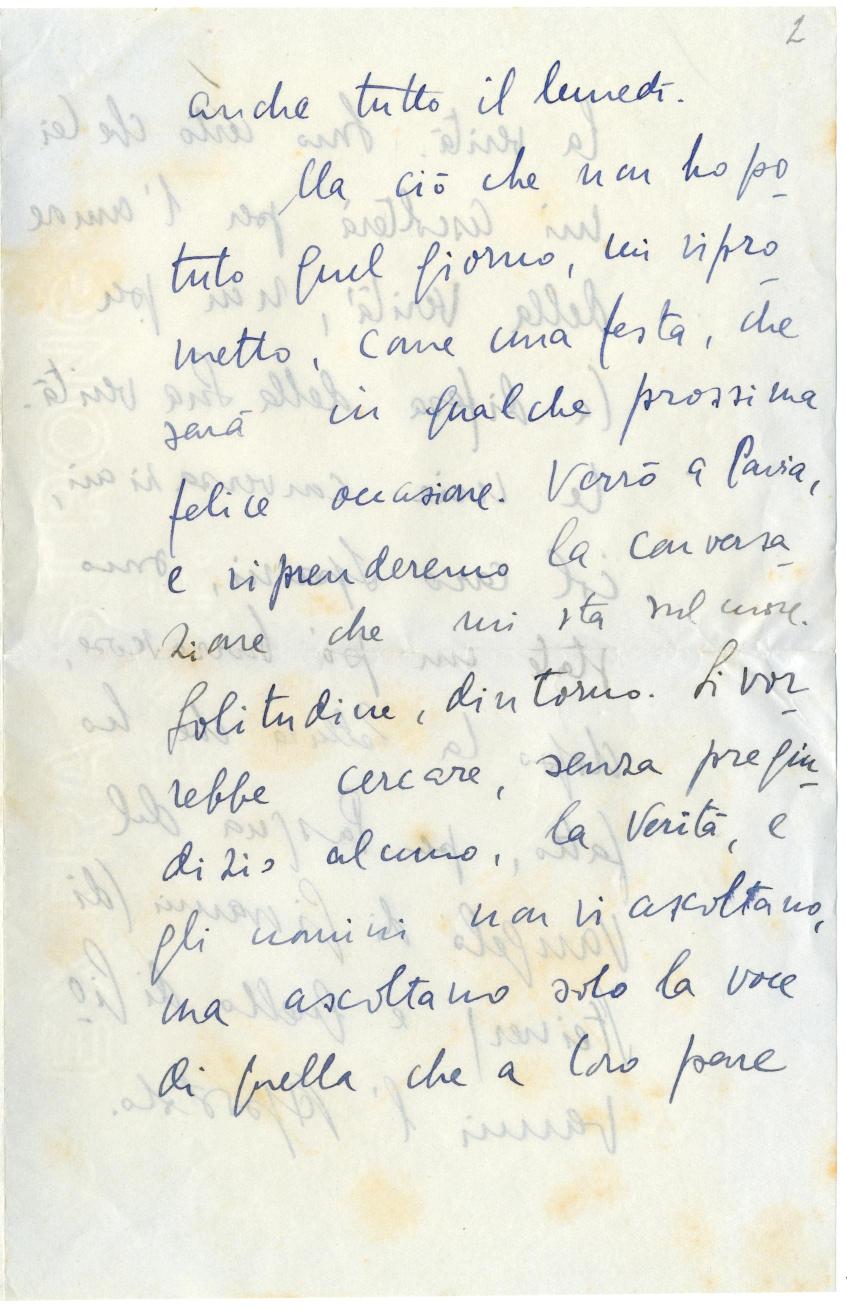 2
anche tutto il lunedì.
Ma ciò che non ho po-
tuto quel giorno, mi ripro-
metto, come una festa, che
sarà in qualche prossima
felice occasione. Verrò a Pavia,
e riprenderemo la conversa-
zione che mi sta sul cuore.
Solitudine, dintorno. Si vor-
rebbe cercare, senza pregiu-
dizio alcuno, la Verità, e
gli uomini non vi ascoltano,
ma ascoltano solo la voce
di quella che a loro pare